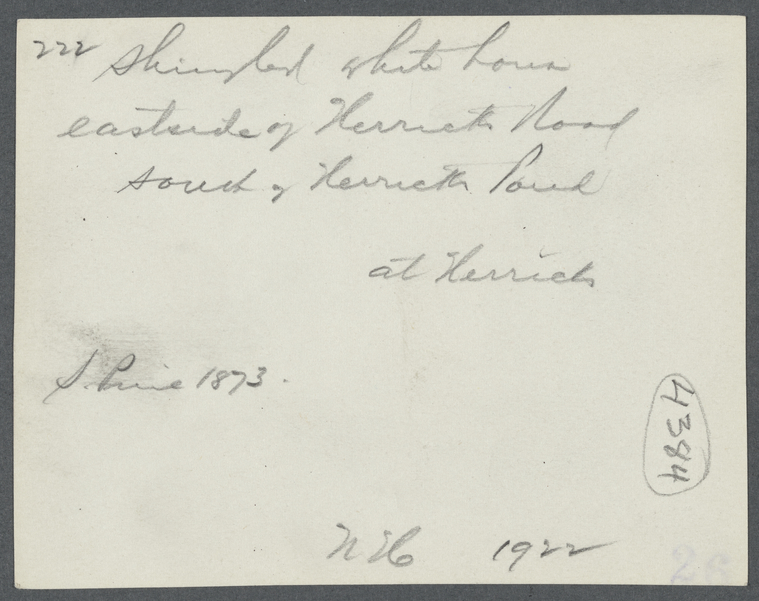 222 Shingled white house
eastside of Herricks Road
south of Herricks Pond
at Herricks
S. Pine 1873.
4384
NH 1922